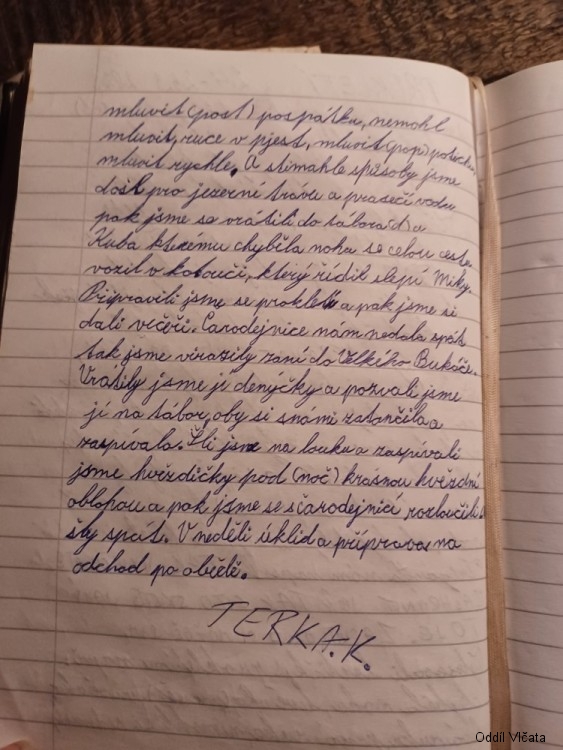 mluvit (post) pospátku, nemohl
mluvit, ruce v pjest, mluvit (pop) potichu,
mluvit rychle. A stimahle spůsoby jsme
došl pro jezerní trávu a prasečí vodu
pak jsme se vrátili do tábora (d) a
Kuba kterému chyběla noha se celou cestu
vozil v kotouči, který řídil slepí Miky.
Připravili jsme se prokletí a pak jsme si
dali večeři. Carodejnice nám nedala spát
tak jsme virazily zaní do Velkého Bukáče.
Vrátily jsme jí denýčky a pozvali jsme
jí na tábor, oby si snámi zatančila a
zaspívala. Šli jsme na louku a zaspívali
jsme hvězdičky pod (noč) krásnou hvězdní
oblohou a pak jsme se sčarodejnicí rozloučili a
šly spát. V neděli úklid a příprava na
odchod po obědě.
TERKA.K.
Oddíl Vlčata